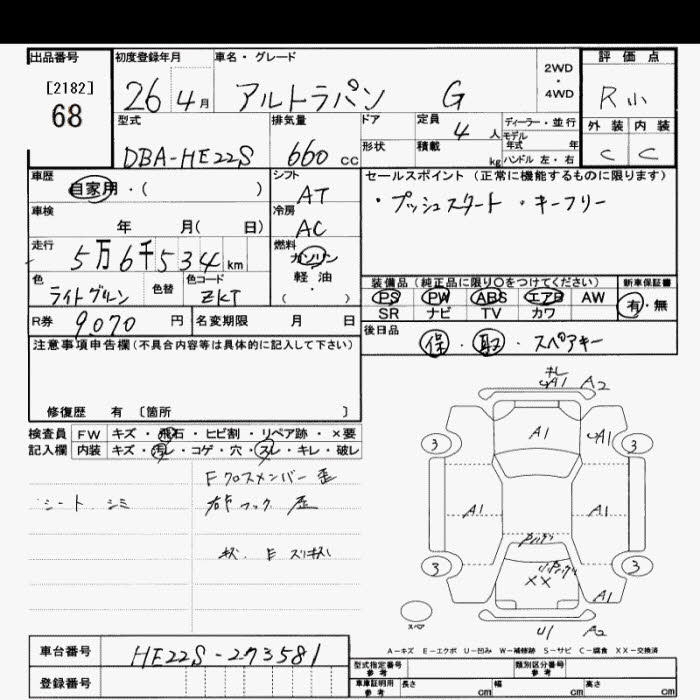 出品番号
[2182]
68
初度登録年月
26 4月
車名・グレード
アルトラパン G
2WD
・
4WD
評価点
R小
外装 内装
C C
型式
DBA-HE22S
排気量
660 cc
ドア
形状
定員
4人
積載
kg
ディーラー・並行
モデル
年式 年
ハンドル 左・右
車歴
自家用・( )
シフト
AT
車検
年 月( 日)
冷房
AC
走行
5万6千534km
燃料
ガソリン
軽・油
( )
色
ライトグリーン
色替
色コード
ZKT
R券 9,070 円
名変期限 月 日
セールスポイント(正常に機能するものに限ります)
・プッシュスタート ・キーフリー
装備品(純正品に限り○をつけてください)
PS PW ABS エアB AW
SR ナビ TV カワ
新車保証書
有・無
後日品
保・取・スペアキー
注意事項申告欄(不具合内容等は具体的に記入して下さい)
修復歴 有〔箇所 〕
検査員
記入欄
FW キズ・飛石・ヒビ割・リペア跡・×要
内装 キズ・汚レ・コゲ・穴・スレ・キレ・破レ
シート シミ
Fクロスメンバー歪
右Fフック 歪
A1 A2
A1 A1
3 3
A1 A1
3 3
××
A1
スペア
U1 A2
A-キズ E-エクボ U-凹み W-補修跡 S-サビ C-腐食 XX-交換済
車台番号 HE22S-273581
登録番号
型式指定番号
参考
類別区分番号
参考
車庫証明用
参考
長さ cm 幅 cm 高さ cm